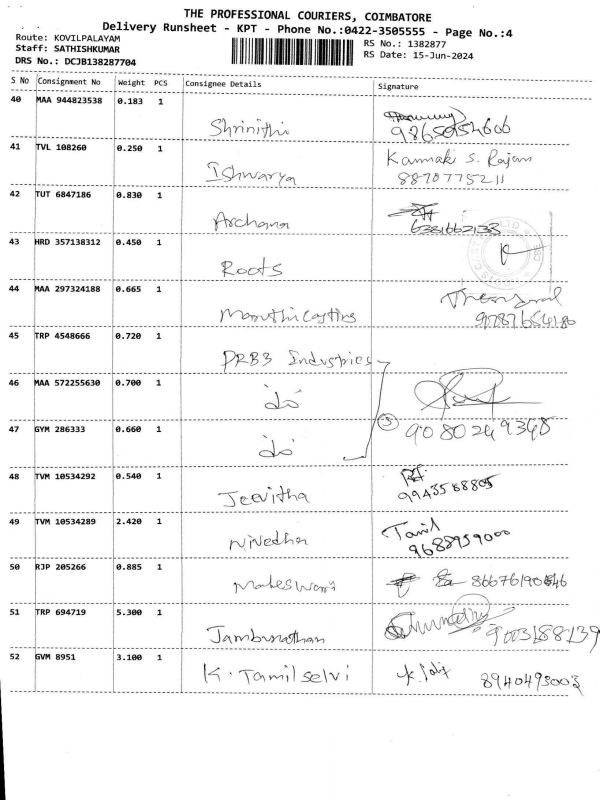 THE PROFESSIONAL COURIERS, COIMBATORE
Delivery Runsheet - KPT - Phone No.:0422-3505555 - Page No.:4
Route: KOVILPALAYAM
RS No.: 1382877
Staff: SATHISHKUMAR
RS Date: 15-Jun-2024
DRS No.: DCJB138287704
S No Consignment No Weight PCS Consignee Details Signature
40 MAA 944823538 0.183 1
Shrinithi
41 TVL 108260 0.250 1 Kannaki S. Rajam
Ishwarya 8870775211
42 TUT 6847186 0.830 1
Archana 6381662133
43 HRD 357138312 0.450 1
Roots
44 MAA 297324188 0.665 1
Maruthi castings
45 TRP 4548666 0.720 1
PRB3 Industries
46 MAA 572255630 0.700 1
47 GYM 286333 0.660 1
3 9080249348
48 TVM 10534292 0.540 1
Jeevitha 9943588805
49 TVM 10534289 2.420 1 Tamil
Nivedha 9688959000
50 RJP 205266 0.885 1
Maheswari
51 TRP 694719 5.300 1
Jambunathan 9003188139
52 GVM 8951 3.100 1
K. Tamilselvi 8940493003